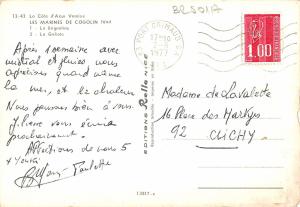 B2501A
13-43 La Côte d'Azur Varoise
LES MARINES DE COGOLIN (Var)
1 - La Brigantine
2 - La Galiote
Après 1 semaine avec
mistral et pluies nous
apprécions quand même
la mer, et la chaleur
Nous pensons bien à vous
Pierre vous écrira
prochainement.
Affections de nous 5
Paulette
EDITIONS Rella NICE
PORT GRIMAUD
1977
1.00
Madame de Lavalette
16 Place des Martyrs
92
CLICHY